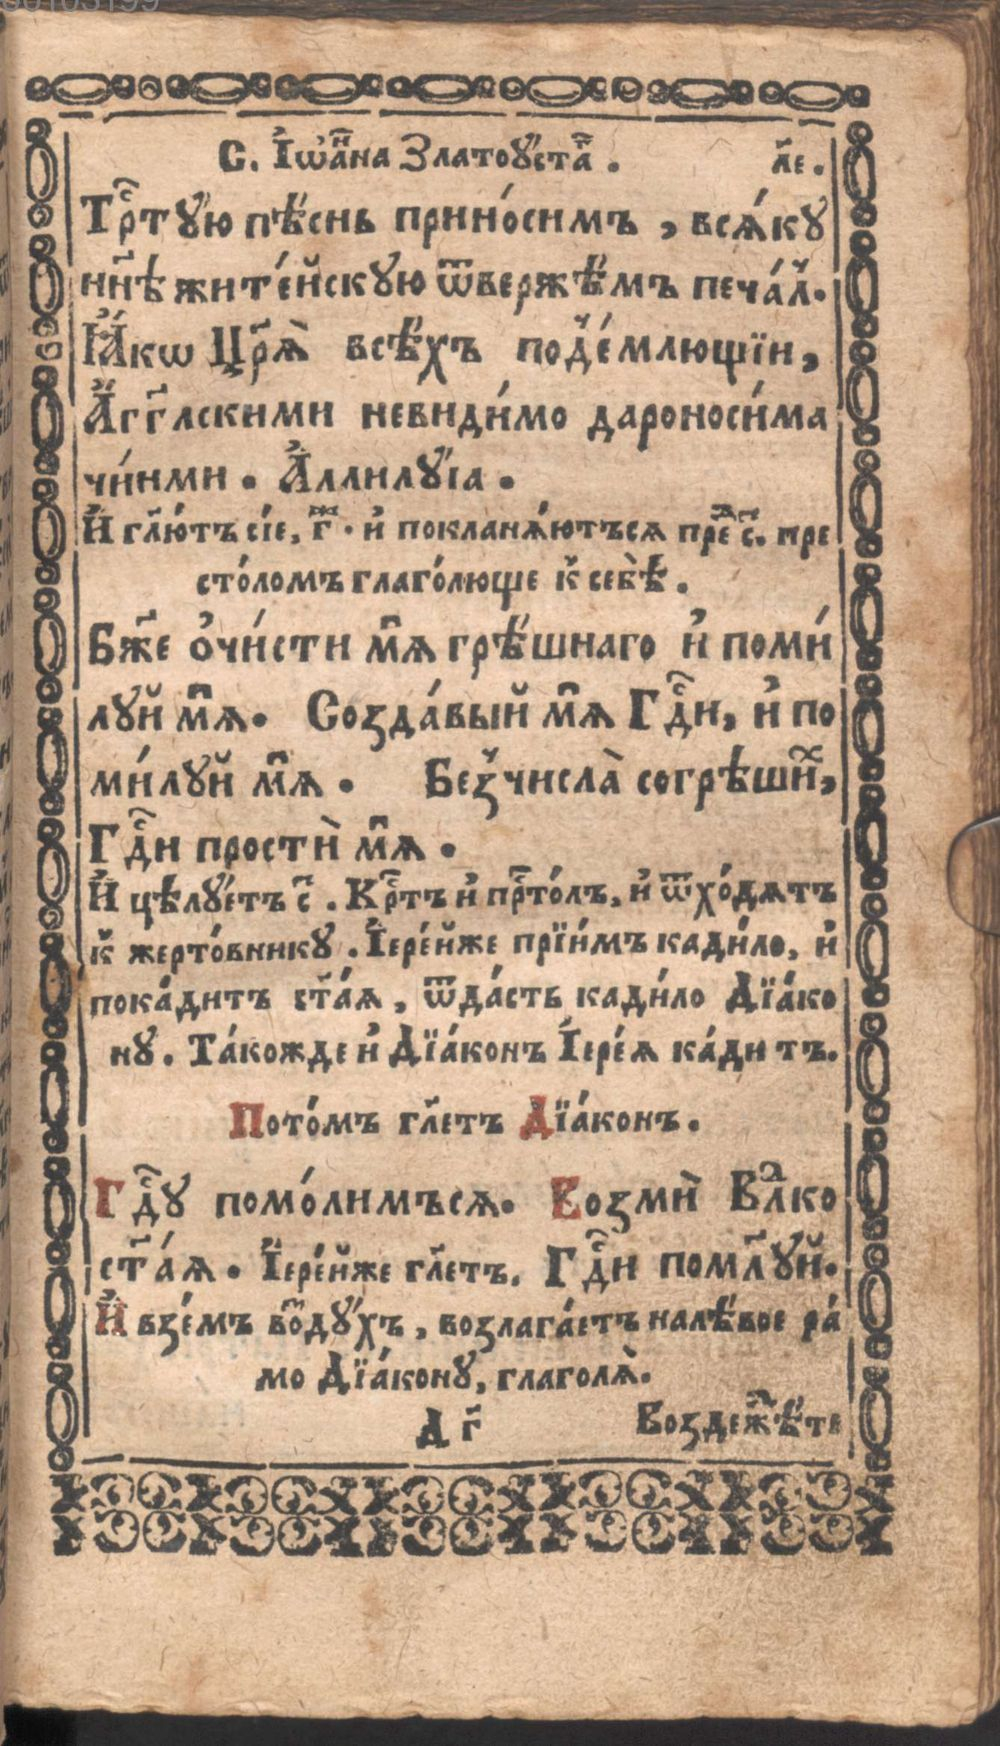 С. І҆ѡа҆́нна Златоу́стаⷢ҇. л҃е.
Трⷭ҇тꙋ́ю пѣ́снь прино́симъ, всѧ́кꙋ
нн҃ѣ жите́йскꙋю ѿверже́мъ печа́л̾.
Ꙗ҆́кѡ Цр҃ѧ̀ всѣ́хъ под̾е́млющїи,
А҆́гг҃лскими невиди́мо дароноси́ма
чи́нми. А҆ллилꙋ́їа.
И҆ гл҃ю́тъ сіе, г҃ⷤ. и҆ покланѧ́ютъсѧ преⷣ с҃. пре
сто́ломъ глаго́люще к̾ себѣ̀.
Бж҃е ѻ҆чи́сти мѧ̀ грѣ́шнаго и҆ поми́
лꙋй мѧ̀. Созда́вый мѧ̀ Гдⷭ҇и, и҆ по
ми́лꙋй мѧ̀. Без̾числа̀ согрѣши́ⷯ,
Гдⷭ҇и простѝ мѧ̀.
И҆ цѣлꙋ́етъ с҃. Крⷭ҇тъ и҆ прⷭ҇то́лъ, и҆ ѿхо́дѧтъ
к̾ жерто́вникꙋ. І҆ере́йже прїи́мъ кади́ло, и҆
пока́дитъ ст҃а́ѧ, ѿда́сть кади́ло Дїа́ко
нꙋ. Та́кожде и҆ Дїа́конъ І҆ере́ѧ ка́дитъ.
Пото́мъ гл҃етъ Дїа́конъ.
Гдⷭ҇ꙋ помо́лимъсѧ. Возмѝ Влⷣко
ст҃а́ѧ. І҆ере́йже гл҃етъ. Гдⷭ҇и пом҃лꙋй.
И҆ взе́мъ во́здꙋхъ, возлага́етъ налѣ́вое ра́
мо Дїа́конꙋ, глаголѧ̀.
Д г҃
Воздежⷣѣ́те